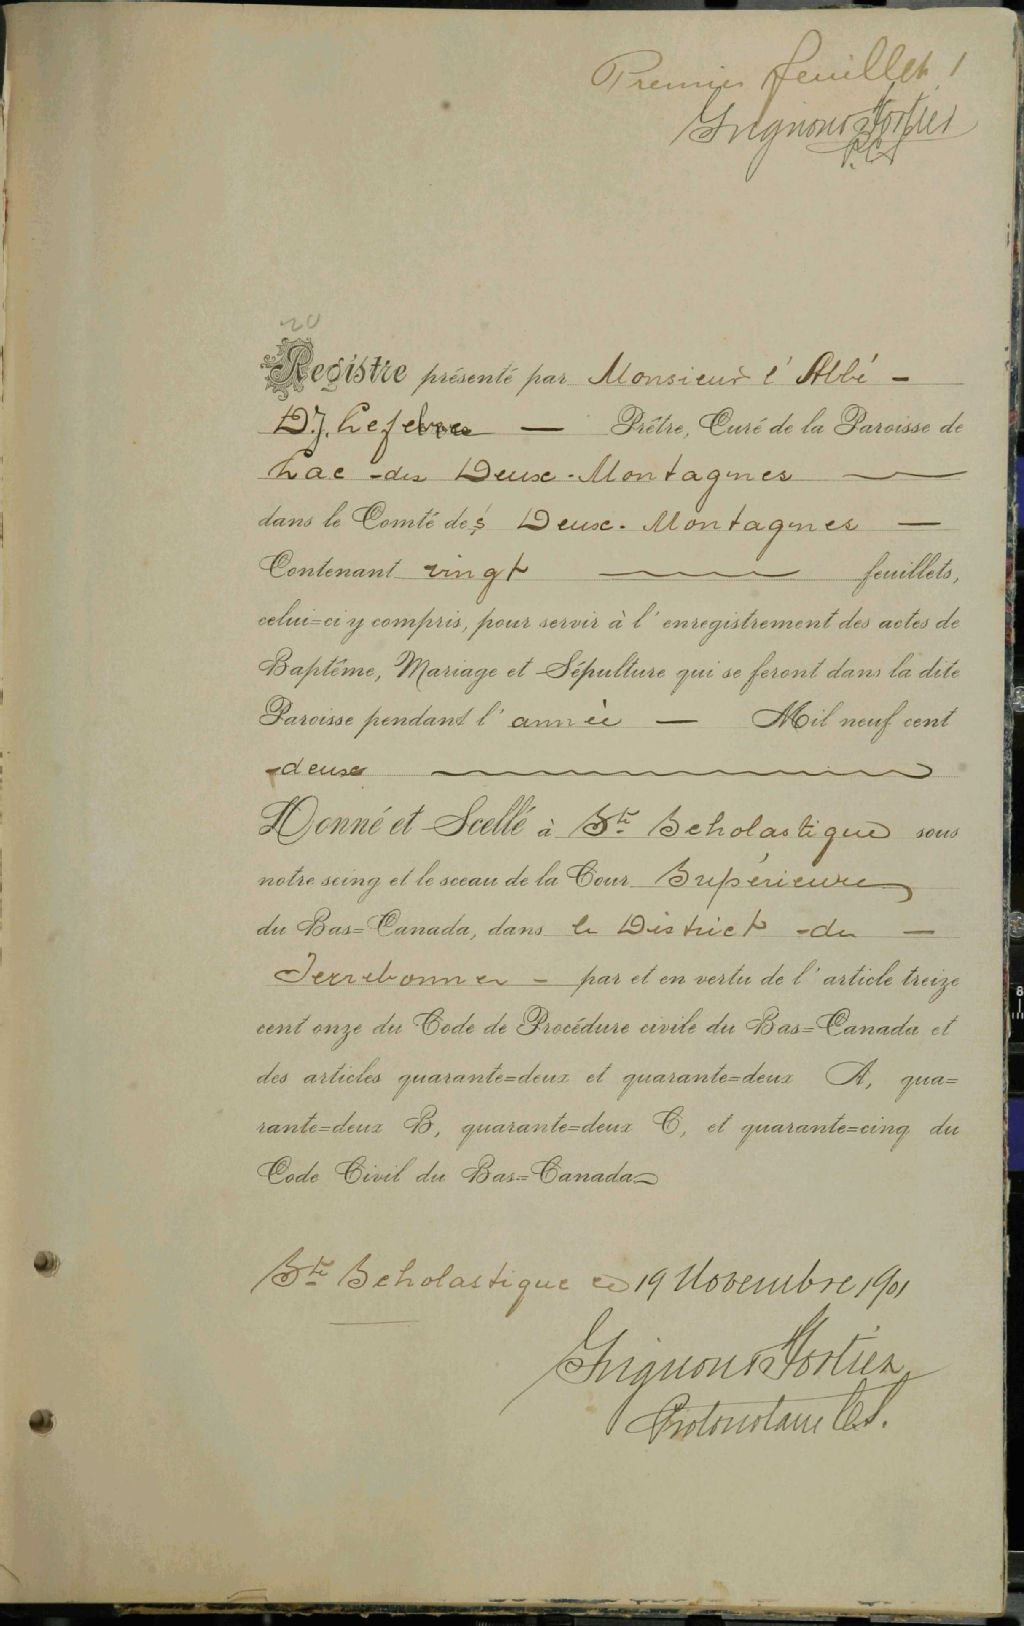 Premier feuillet 1
Grignon & Fortier
P.C.S.
20
Registre présenté par Monsieur l'Abbé –
D.J. Lefebvre — Prêtre, Curé de la Paroisse de
Lac-des Deux-Montagnes —
dans le Comté des Deux-Montagnes —
Contenant vingt — feuillets,
celui=ci y compris, pour servir à l'enregistrement des actes de
Baptême, Mariage et Sépulture qui se feront dans la dite
Paroisse pendant l'année — Mil neuf cent
deux —
Donné et Scellé à Ste Scholastique sous
notre seing et le sceau de la Cour Supérieure
du Bas=Canada, dans le District de —
Terrebonne – par et en vertu de l'article treize
cent onze du Code de Procédure civile du Bas=Canada et
des articles quarante=deux et quarante=deux A, qua=
rante=deux B, quarante=deux C, et quarante=cinq du
Code Civil du Bas=Canada
Ste Scholastique ce 19 Novembre 1901
Grignon & Fortier
Protonotaire C.S.